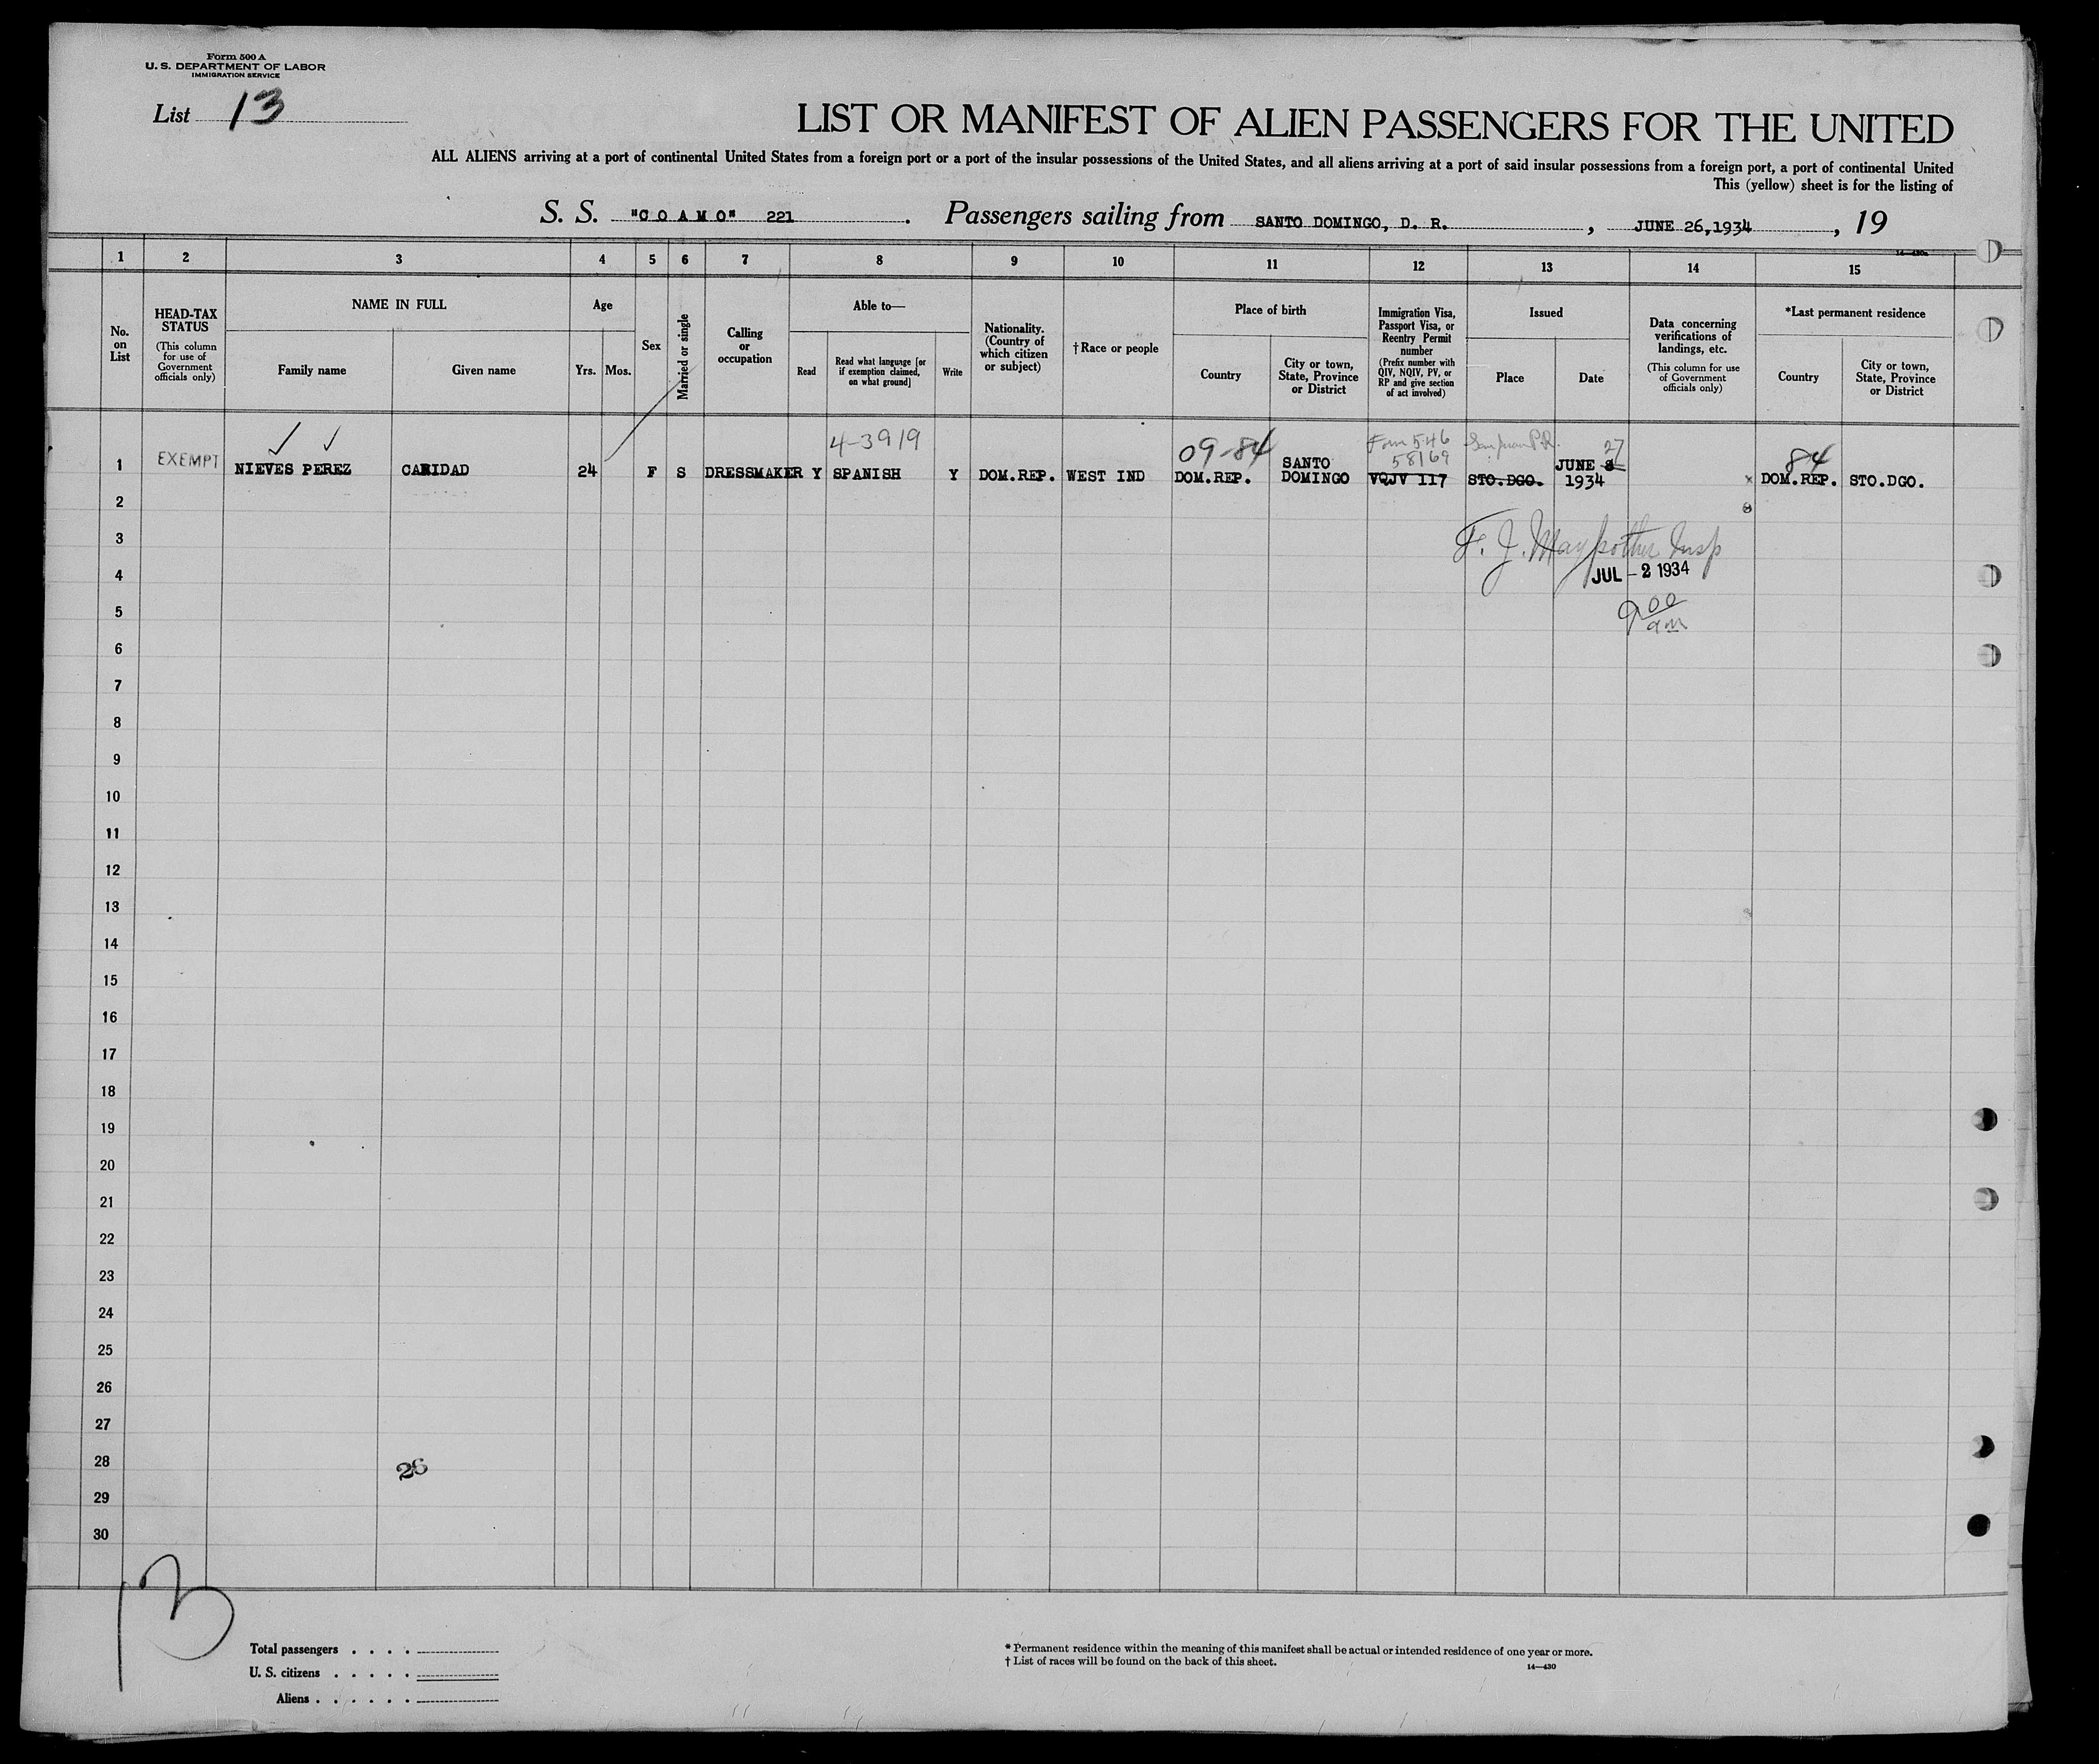 Form 500 A
U. S. DEPARTMENT OF LABOR
IMMIGRATION SERVICE
List 13
LIST OR MANIFEST OF ALIEN PASSENGERS FOR THE UNITED
ALL ALIENS arriving at a port of continental United States from a foreign port or a port of the insular possessions of the United States, and all aliens arriving at a port of said insular possessions from a foreign port, a port of continental United
This (yellow) sheet is for the listing of
S. S. "C O A M O" 221 . Passengers sailing from SANTO DOMINGO, D. R. , JUNE 26,1934 , 19
14—430a
1 2 3 4 5 6 7 8 9 10 11 12 13 14 15
No. on List
HEAD-TAX STATUS
(This column for use of Government officials only)
NAME IN FULL
Family name
Given name
Age
Yrs.
Mos.
Sex
Married or single
Calling or occupation
Able to—
Read
Read what language [or if exemption claimed, on what ground]
Write
Nationality. (Country of which citizen or subject)
†Race or people
Place of birth
Country
City or town, State, Province or District
Immigration Visa, Passport Visa, or Reentry Permit number
(Prefix number with QIV, NQIV, PV, or RP and give section of act involved)
Issued
Place
Date
Data concerning verifications of landings, etc.
(This column for use of Government officials only)
*Last permanent residence
Country
City or town, State, Province or District
4-3919 09-84 Form 546 San Juan P.R. 27 84
58169
1 EXEMPT NIEVES PEREZ CARIDAD 24 F S DRESSMAKER Y SPANISH Y DOM.REP. WEST IND DOM.REP. SANTO DOMINGO VQJV 117 STO.DGO. JUNE 8 1934 x DOM.REP. STO.DGO.
2
3
F. J. Insp
4
JUL - 2 1934
5
9 00 am
6
7
8
9
10
11
12
13
14
15
16
17
18
19
20
21
22
23
24
25
26
27
28
26
29
30
13
Total passengers . . . .
U. S. citizens . . . . .
Aliens . . . . . .
* Permanent residence within the meaning of this manifest shall be actual or intended residence of one year or more.
† List of races will be found on the back of this sheet.
14—430